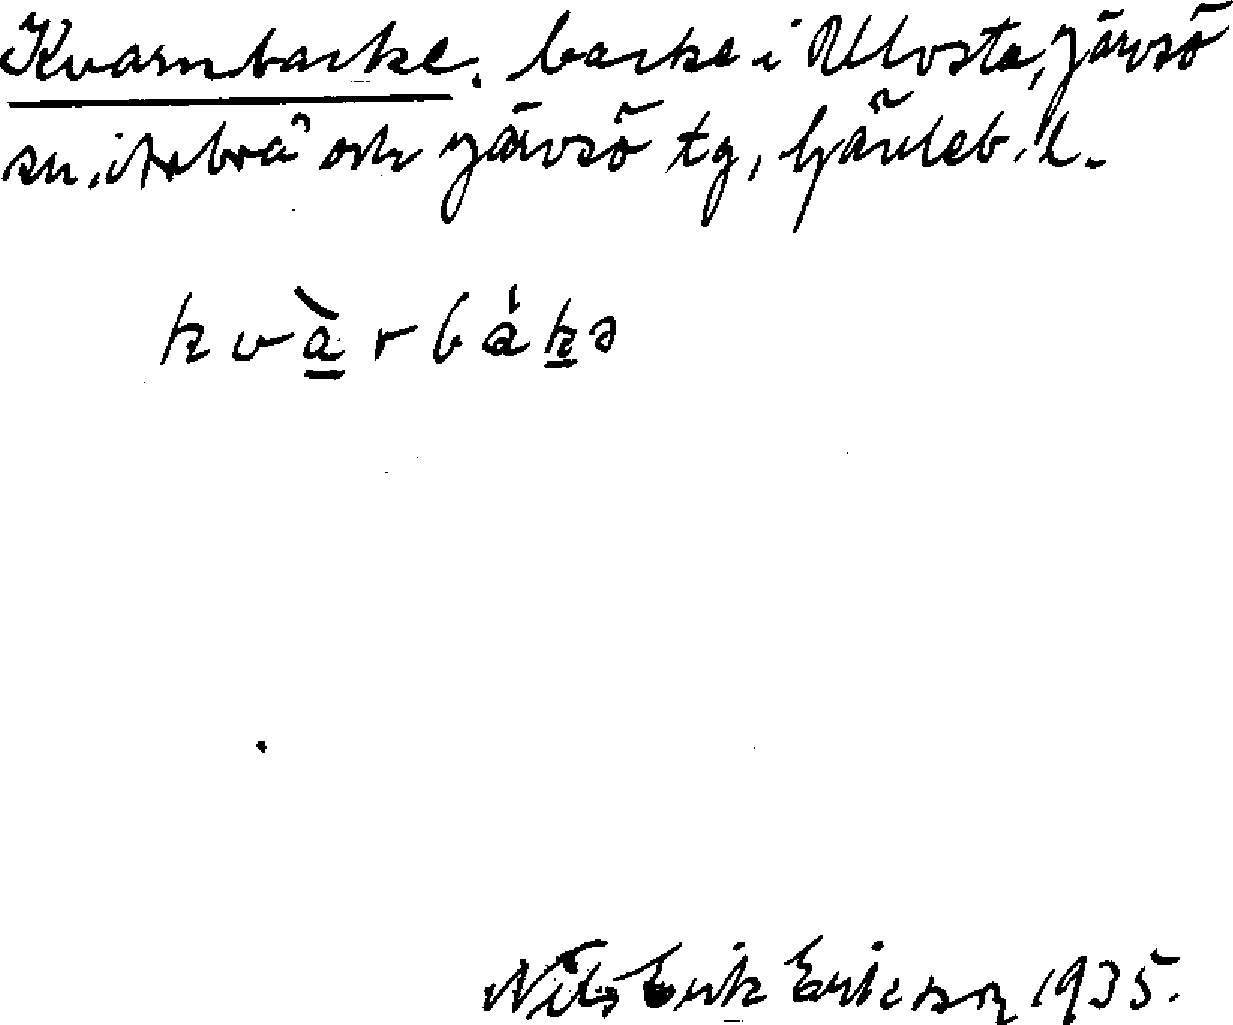 Kvarnbacke. backe i Ullvosta, Järvsö
sn, i Arbrå och Järvsö tg, Gävleb. l.
kvàrbákə
Nils Erik Ericson 1935.